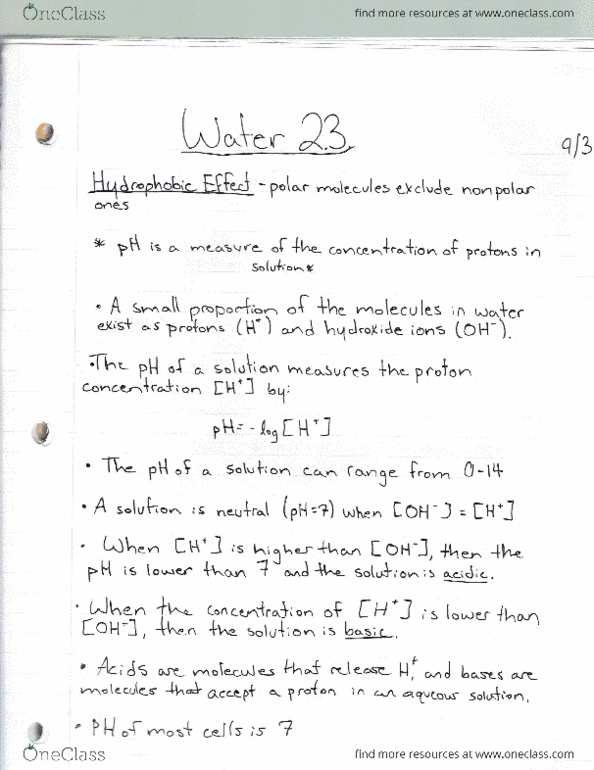 OneClass find more resources at www.oneclass.com
Water 2.3
9/3
Hydrophobic Effect - polar molecules exclude nonpolar
ones
* pH is a measure of the concentration of protons in
solution *
• A small proportion of the molecules in water
exist as protons (H⁺) and hydroxide ions (OH⁻).
• The pH of a solution measures the proton
concentration [H⁺] by:
pH = - log [H⁺]
• The pH of a solution can range from 0-14
• A solution is neutral (pH=7) when [OH⁻] = [H⁺]
• When [H⁺] is higher than [OH⁻], then the
pH is lower than 7 and the solution is acidic.
• When the concentration of [H⁺] is lower than
[OH⁻], then the solution is basic.
• Acids are molecules that release H⁺, and bases are
molecules that accept a proton in an aqueous solution.
• PH of most cells is 7
OneClass find more resources at www.oneclass.com